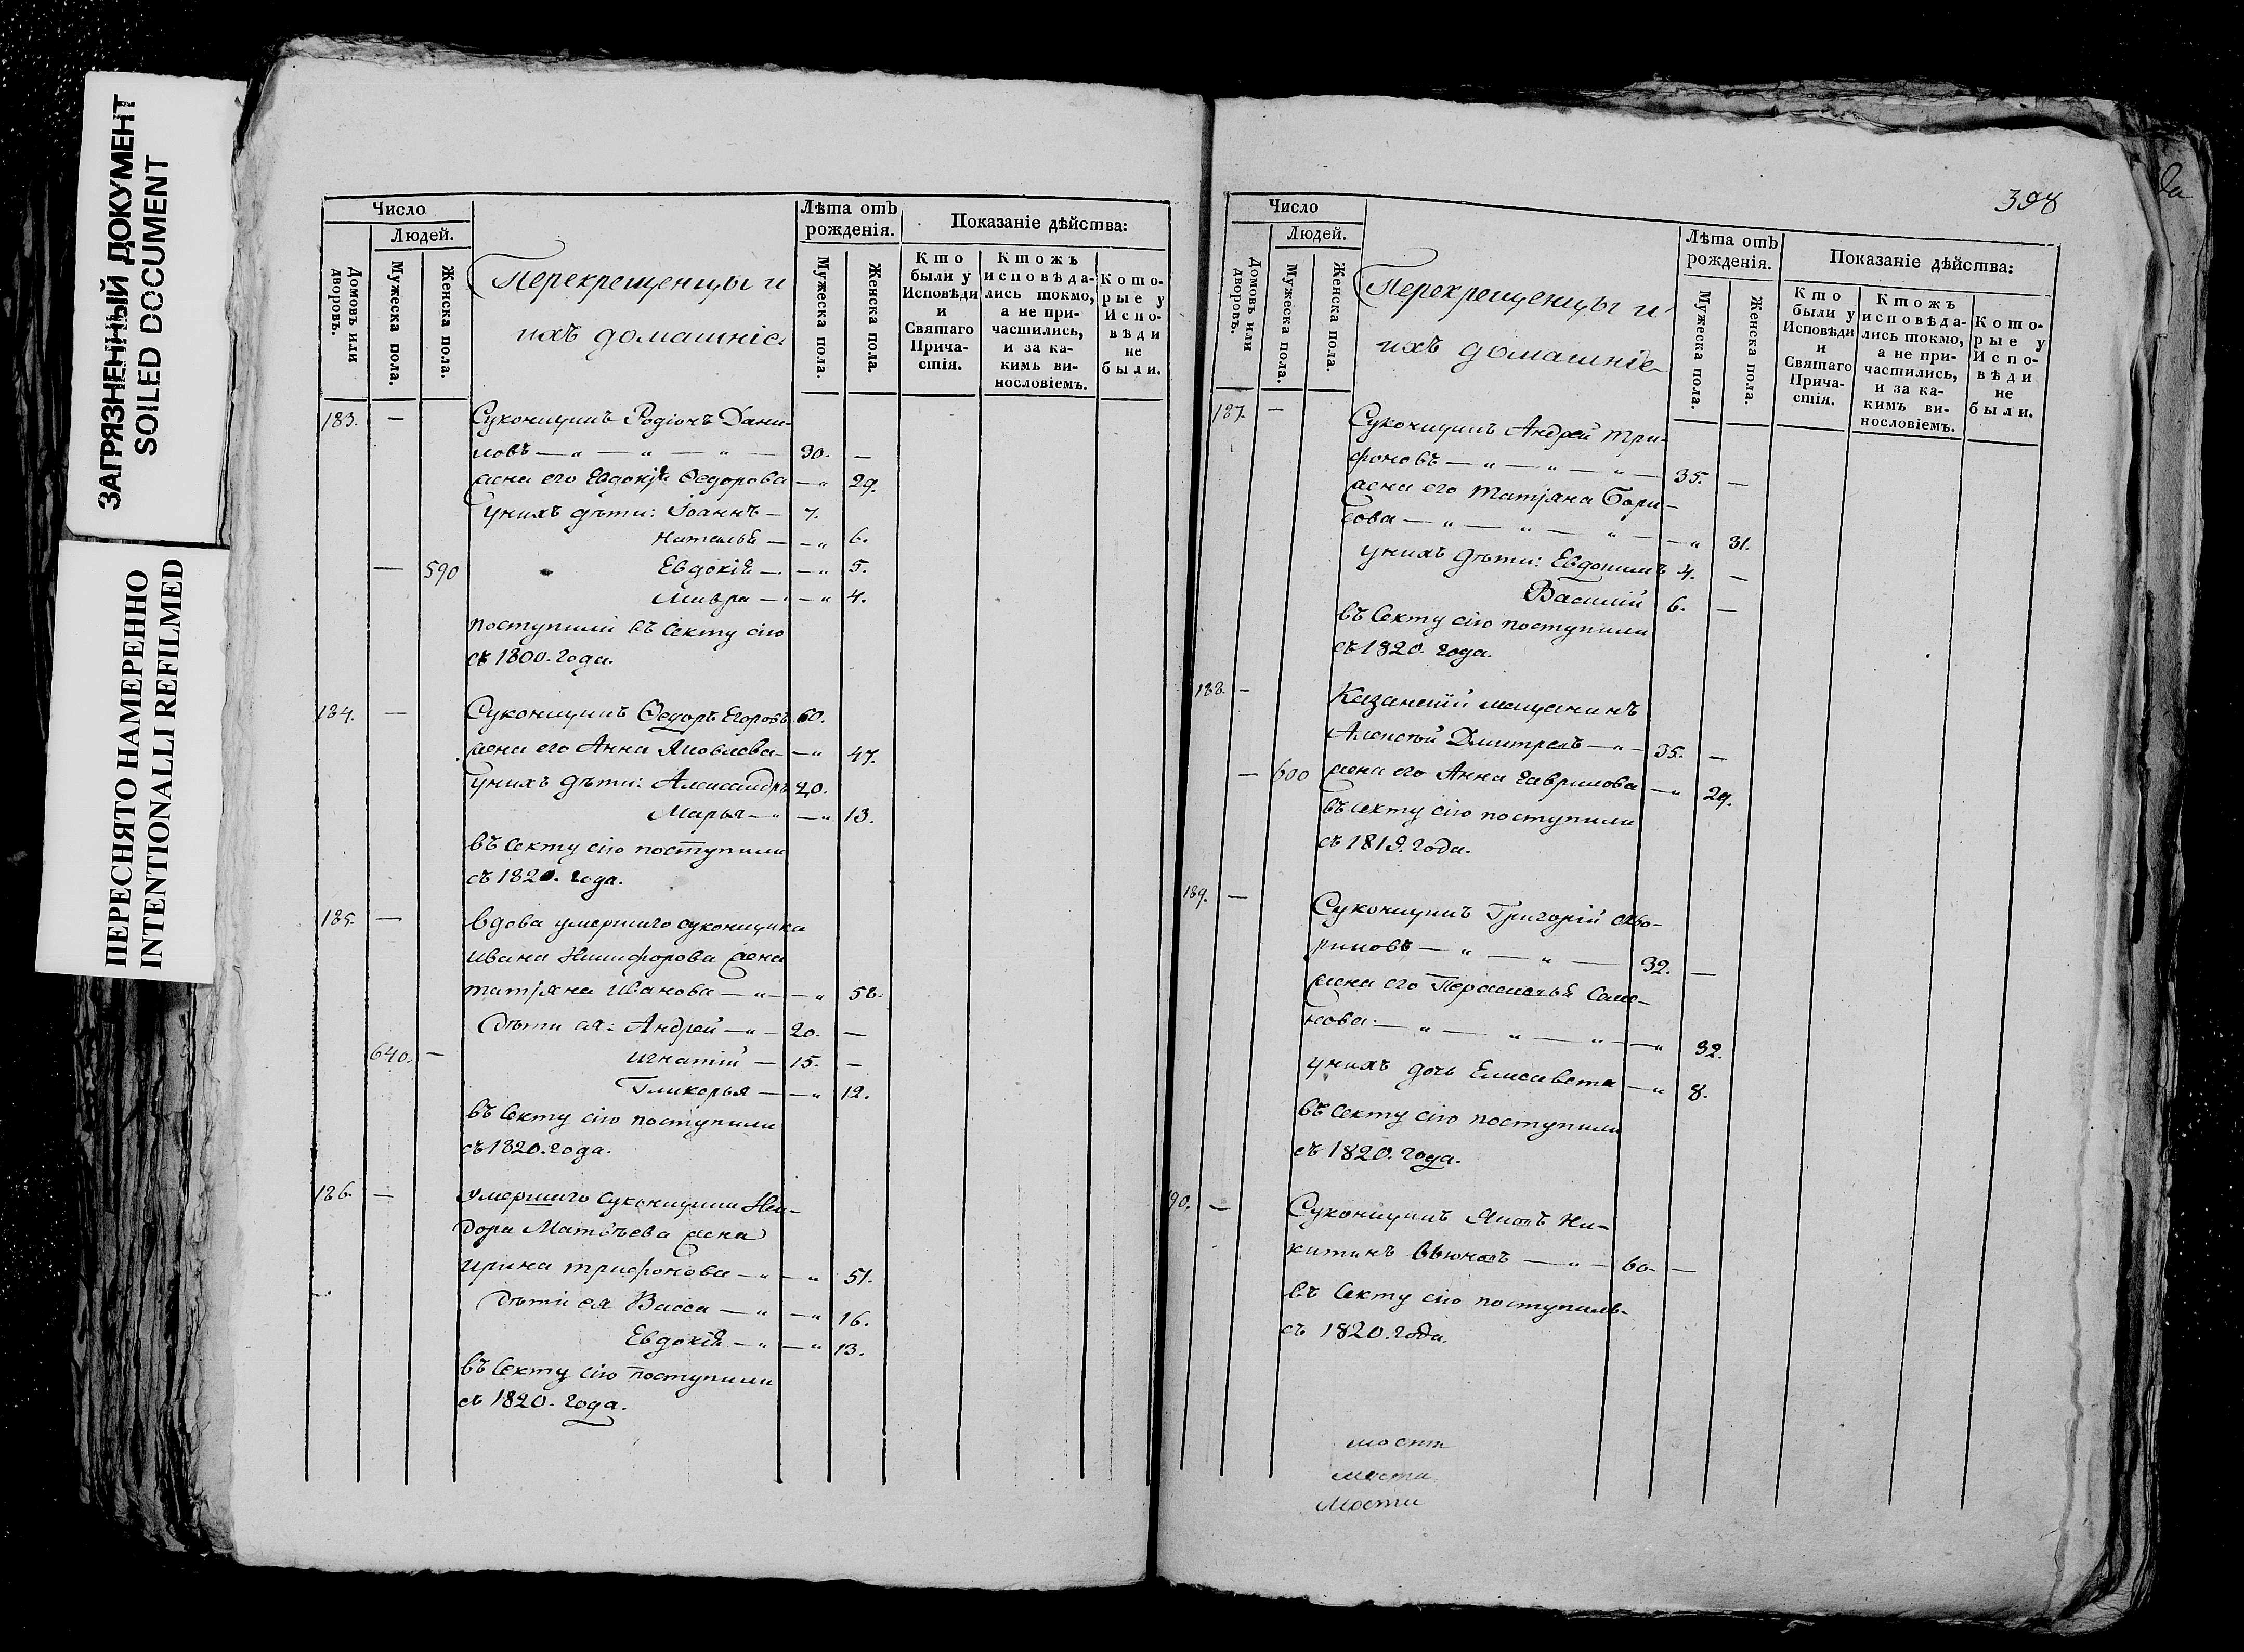 ЗАГРЯЗНЕННЫЙ ДОКУМЕНТ
SOILED DOCUMENT
ПЕРЕСНЯТО НАМЕРЕННО
INTENTIONALLI REFILMED
Число
Людей.
Домовъ или дворовъ.
Мужеска пола.
Женска пола.
Перекрещенцы и
ихъ домашніе
Лѣта отъ
рожденія.
Мужеска пола.
Женска пола.
Показаніе дѣйства:
Кто
были у
Исповѣди
и
Святаго
Прича-
стія.
Ктожъ
исповѣда-
лись токмо,
а не при-
частились,
и за ка-
кимъ ви-
нословіемъ.
Кото-
рые у
Испо-
вѣди
не
были.
183. — Суконщикъ Родіонъ Дани-
ловъ — „ — „ — „ — 30. —
жена его Евдокія Ѳедорова — „ 29.
у нихъ дѣти: Іоаннъ — 7.
Наталья — — „ 6.
— 590 Евдокія — — „ 5.
Мавра — — „ 4.
поступили въ секту сію
съ 1800. года.
184. — Суконщикъ Ѳедоръ Егоровъ 60.
жена его Анна Яковлева — — „ 47.
у нихъ дѣти: Александръ 20.
Марья — „ — „ 13.
въ секту сію поступили
съ 1820. года.
185. — вдова умершаго суконщика
Ивана Никифорова жена
татьяна Иванова — „ — — „ 58.
дѣти ея: Андрей — „ — 20. —
640. — Игнатій — 15. —
Гликерья — — „ 12.
въ секту сію поступили
съ 1820. года.
186. — Умершаго суконщика
дора Матвѣева жена
Ирина трифонова — „ — „ 51.
дѣти ея Васса — „ — „ 16.
Евдокія — „ — „ 13.
въ секту сію поступили
съ 1820. года.
398
Число
Людей.
Домовъ или дворовъ.
Мужеска пола.
Женска пола.
Перекрещенцы и
ихъ домашніе
Лѣта отъ
рожденія.
Мужеска пола.
Женска пола.
Показаніе дѣйства:
Кто
были у
Исповѣди
и
Святаго
Прича-
стія.
Ктожъ
исповѣда-
лись токмо,
а не при-
частились,
и за ка-
кимъ ви-
нословіемъ.
Кото-
рые у
Испо-
вѣди
не
были.
187. — Суконщикъ Андрей три-
фоновъ — „ — „ — „ — 35. —
жена его татьяна Бори-
сова — „ — „ — „ — — „ 31.
у нихъ дѣти: Евдокимъ 4. —
Василій 6. —
въ секту сію поступили
съ 1820. года.
188. — Казанскій мещанинъ
Алексѣй Дмитревъ — „ — 35. —
— 600 жена его Анна Гаврилова — „ 29.
въ секту сію поступили
съ 1819. года.
189. — Суконщикъ Григорій
— „ — „ — 32. —
жена его Парасковья Семе-
нова — „ — „ — „ — „ 32.
у нихъ дочь Елисавета — „ 8.
въ секту сію поступили
съ 1820. года.
90. — Суконщикъ Ни-
китинъ — „ — 60. —
въ секту сію поступилъ
съ 1820. года.
мости
мости
Мости